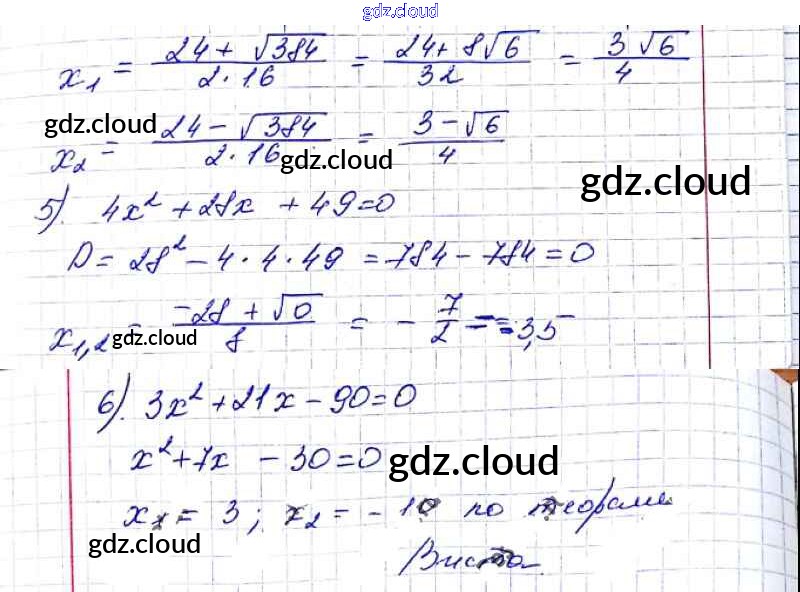 gdz.cloud
x₁ = (24 + √384)/(2·16) = (24 + 8√6)/32 = (3 √6)/4
gdz.cloud
x₂ = (24 − √384)/(2·16) = (3 − √6)/4
gdz.cloud
gdz.cloud
5). 4x² + 28x + 49 = 0
D = 28² − 4·4·49 = 784 − 784 = 0
x₁,₂ = (−28 + √0)/8 = −7/2 = −3,5
gdz.cloud
6). 3x² + 21x − 90 = 0
x² + 7x − 30 = 0
gdz.cloud
x₁ = 3; x₂ = −10 по теореме
gdz.cloud
Виета